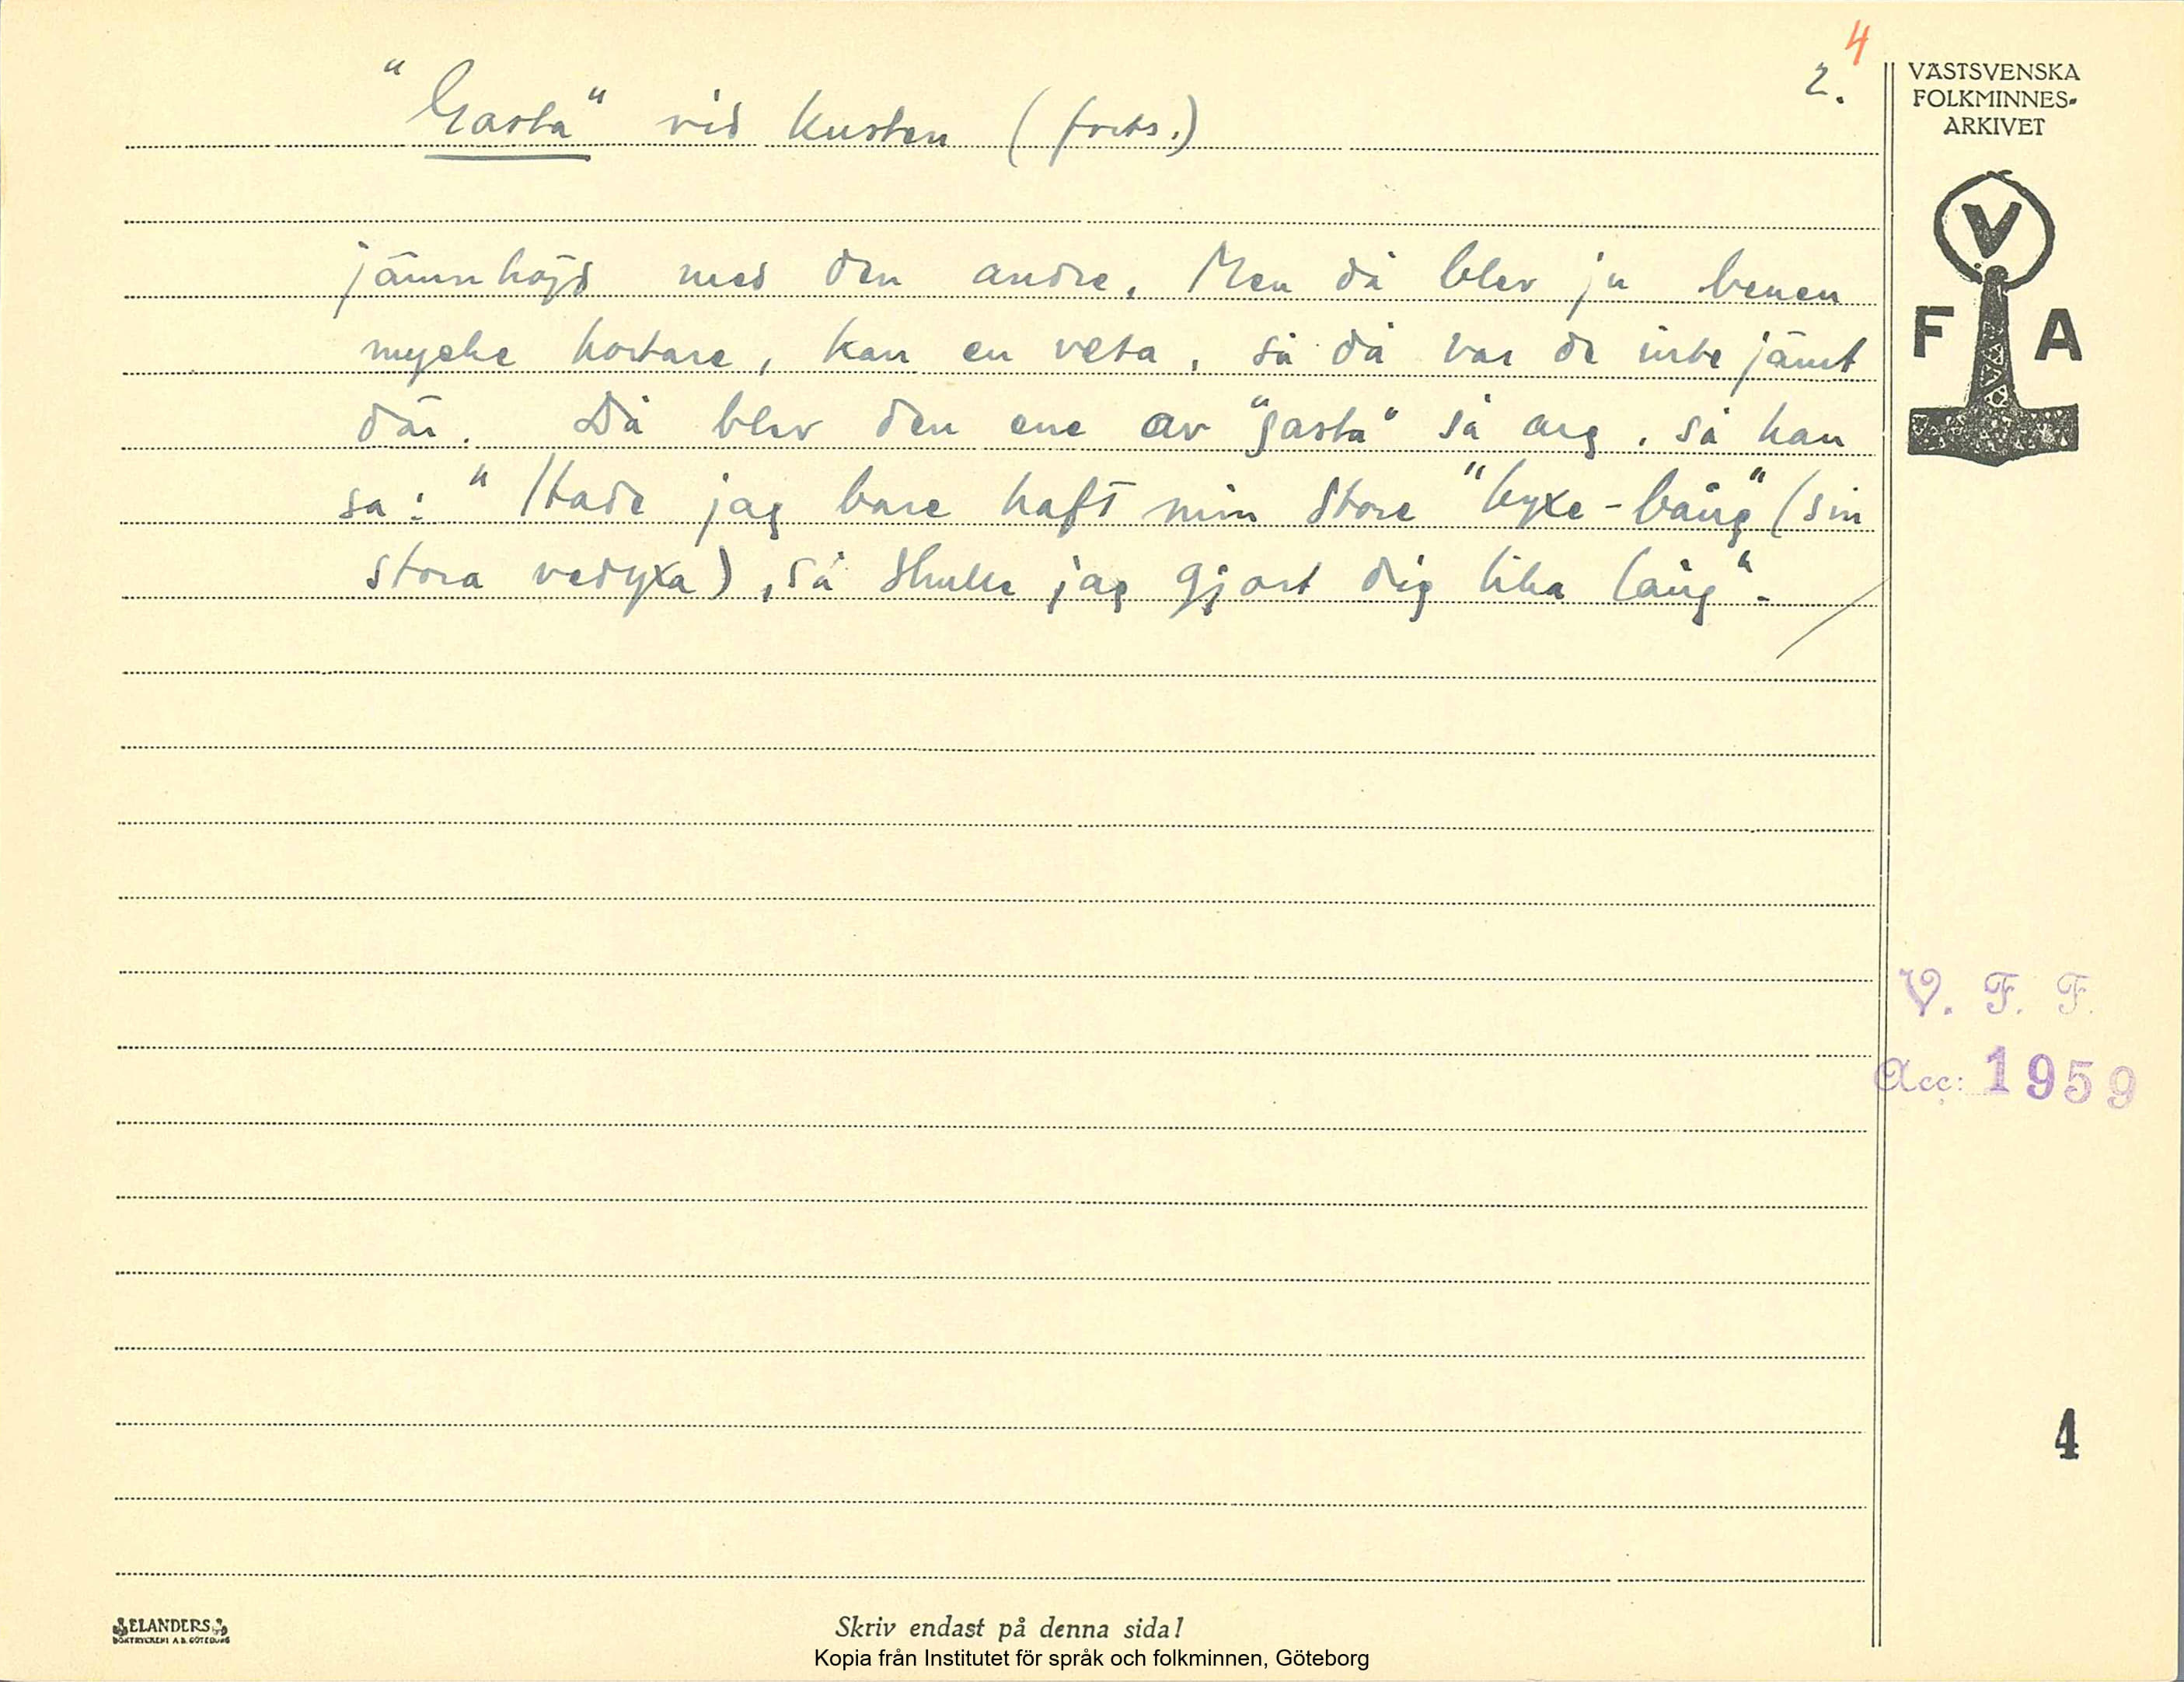 4
2.
"Gasta" vid kusten (forts.)
jämnhöjd med den andre. Men då blev ju benen
mycke kortare, kan en veta, så då var de inte jämt
där. Då blev den ene av "gasta" så arg, så han
sa: "Hade jag bare haft min store "byxe-bång" (sin
stora vedyxa), så skulle jag gjort dig lika lång".
VÄSTSVENSKA
FOLKMINNES-
ARKIVET
V
F A
V. F. F.
Acc: 1959
4
ELANDERS
BOKTRYCKERI A.B. GÖTEBORG
Skriv endast på denna sida!
Kopia från Institutet för språk och folkminnen, Göteborg